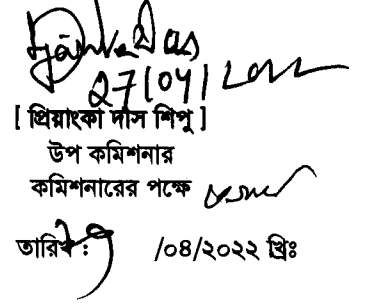 27/04/2022
[ প্রিয়াংকা দাস শিপু ]
উপ কমিশনার
কমিশনারের পক্ষে
তারিখ : /০৪/২০২২ খ্রিঃ